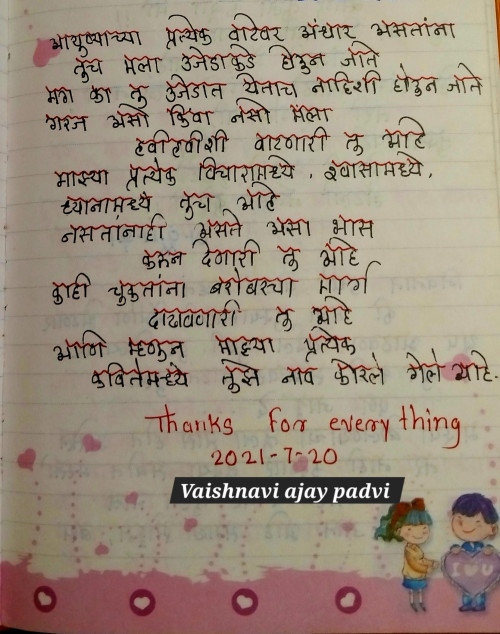 आयुष्याच्या प्रत्येक वाटेवर अंधार असतांना
तुच मला उजेडाकडे घेऊन जाते
मग का तु उजेडात येताच नाहिशी होऊन जाते
गरज असो किंवा नसो मला
हवीहवीशी वाटणारी तु आहे
माझ्या प्रत्येक विचारामध्ये, श्वासामध्ये,
ध्यानामध्ये तुच आहे
नसतांनाही असते असा भास
करून देणारी तु आहे
काही चुकतांना बरोबरचा मार्ग
दाखवणारी तु आहे
आणि म्हणुन माझ्या प्रत्येक
कवितेमध्ये तुझं नाव कोरले गेले आहे.
Thanks for everything
2021-7-20
Vaishnavi ajay padvi
I U